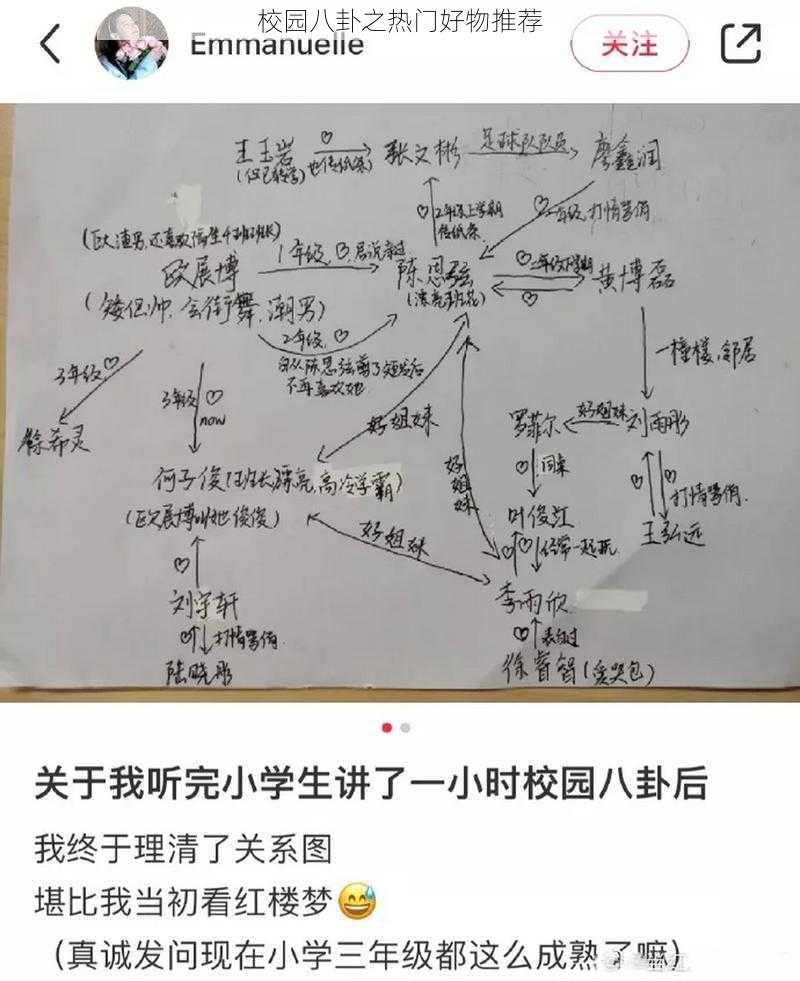 校园八卦之热门好物推荐
Emmanuelle
关注
王玉岩
张文彬
足球队队员
廖鑫润
(仅已转学)
也传纸条
2年级上学期
传纸条
2年级,打情骂俏
(欧渣男,还喜欢
欧展博
1年级,
陈思弦
(漂亮班花)
2年级下学期
黄博磊
(矮但帅,会街舞,潮男)
2年级,
自从陈思弦剪了短发后
不再喜欢她
3年级,
徐希灵
3年级
now
一幢楼,邻居
好姐妹
罗菲尔
好姐妹
刘雨彤
何子俊(班长,漂亮,高冷学霸)
好姐妹
同桌
打情骂俏
(欧展博叫她俊俊)
好姐妹
叶俊江
王弘远
经常一起玩
刘宇轩
李雨欣
打情骂俏
表白过
陆晓彤
徐睿智(爱哭包)
关于我听完小学生讲了一小时校园八卦后
我终于理清了关系图
堪比我当初看红楼梦😅
（真诚发问现在小学三年级都这么成熟了嘛）